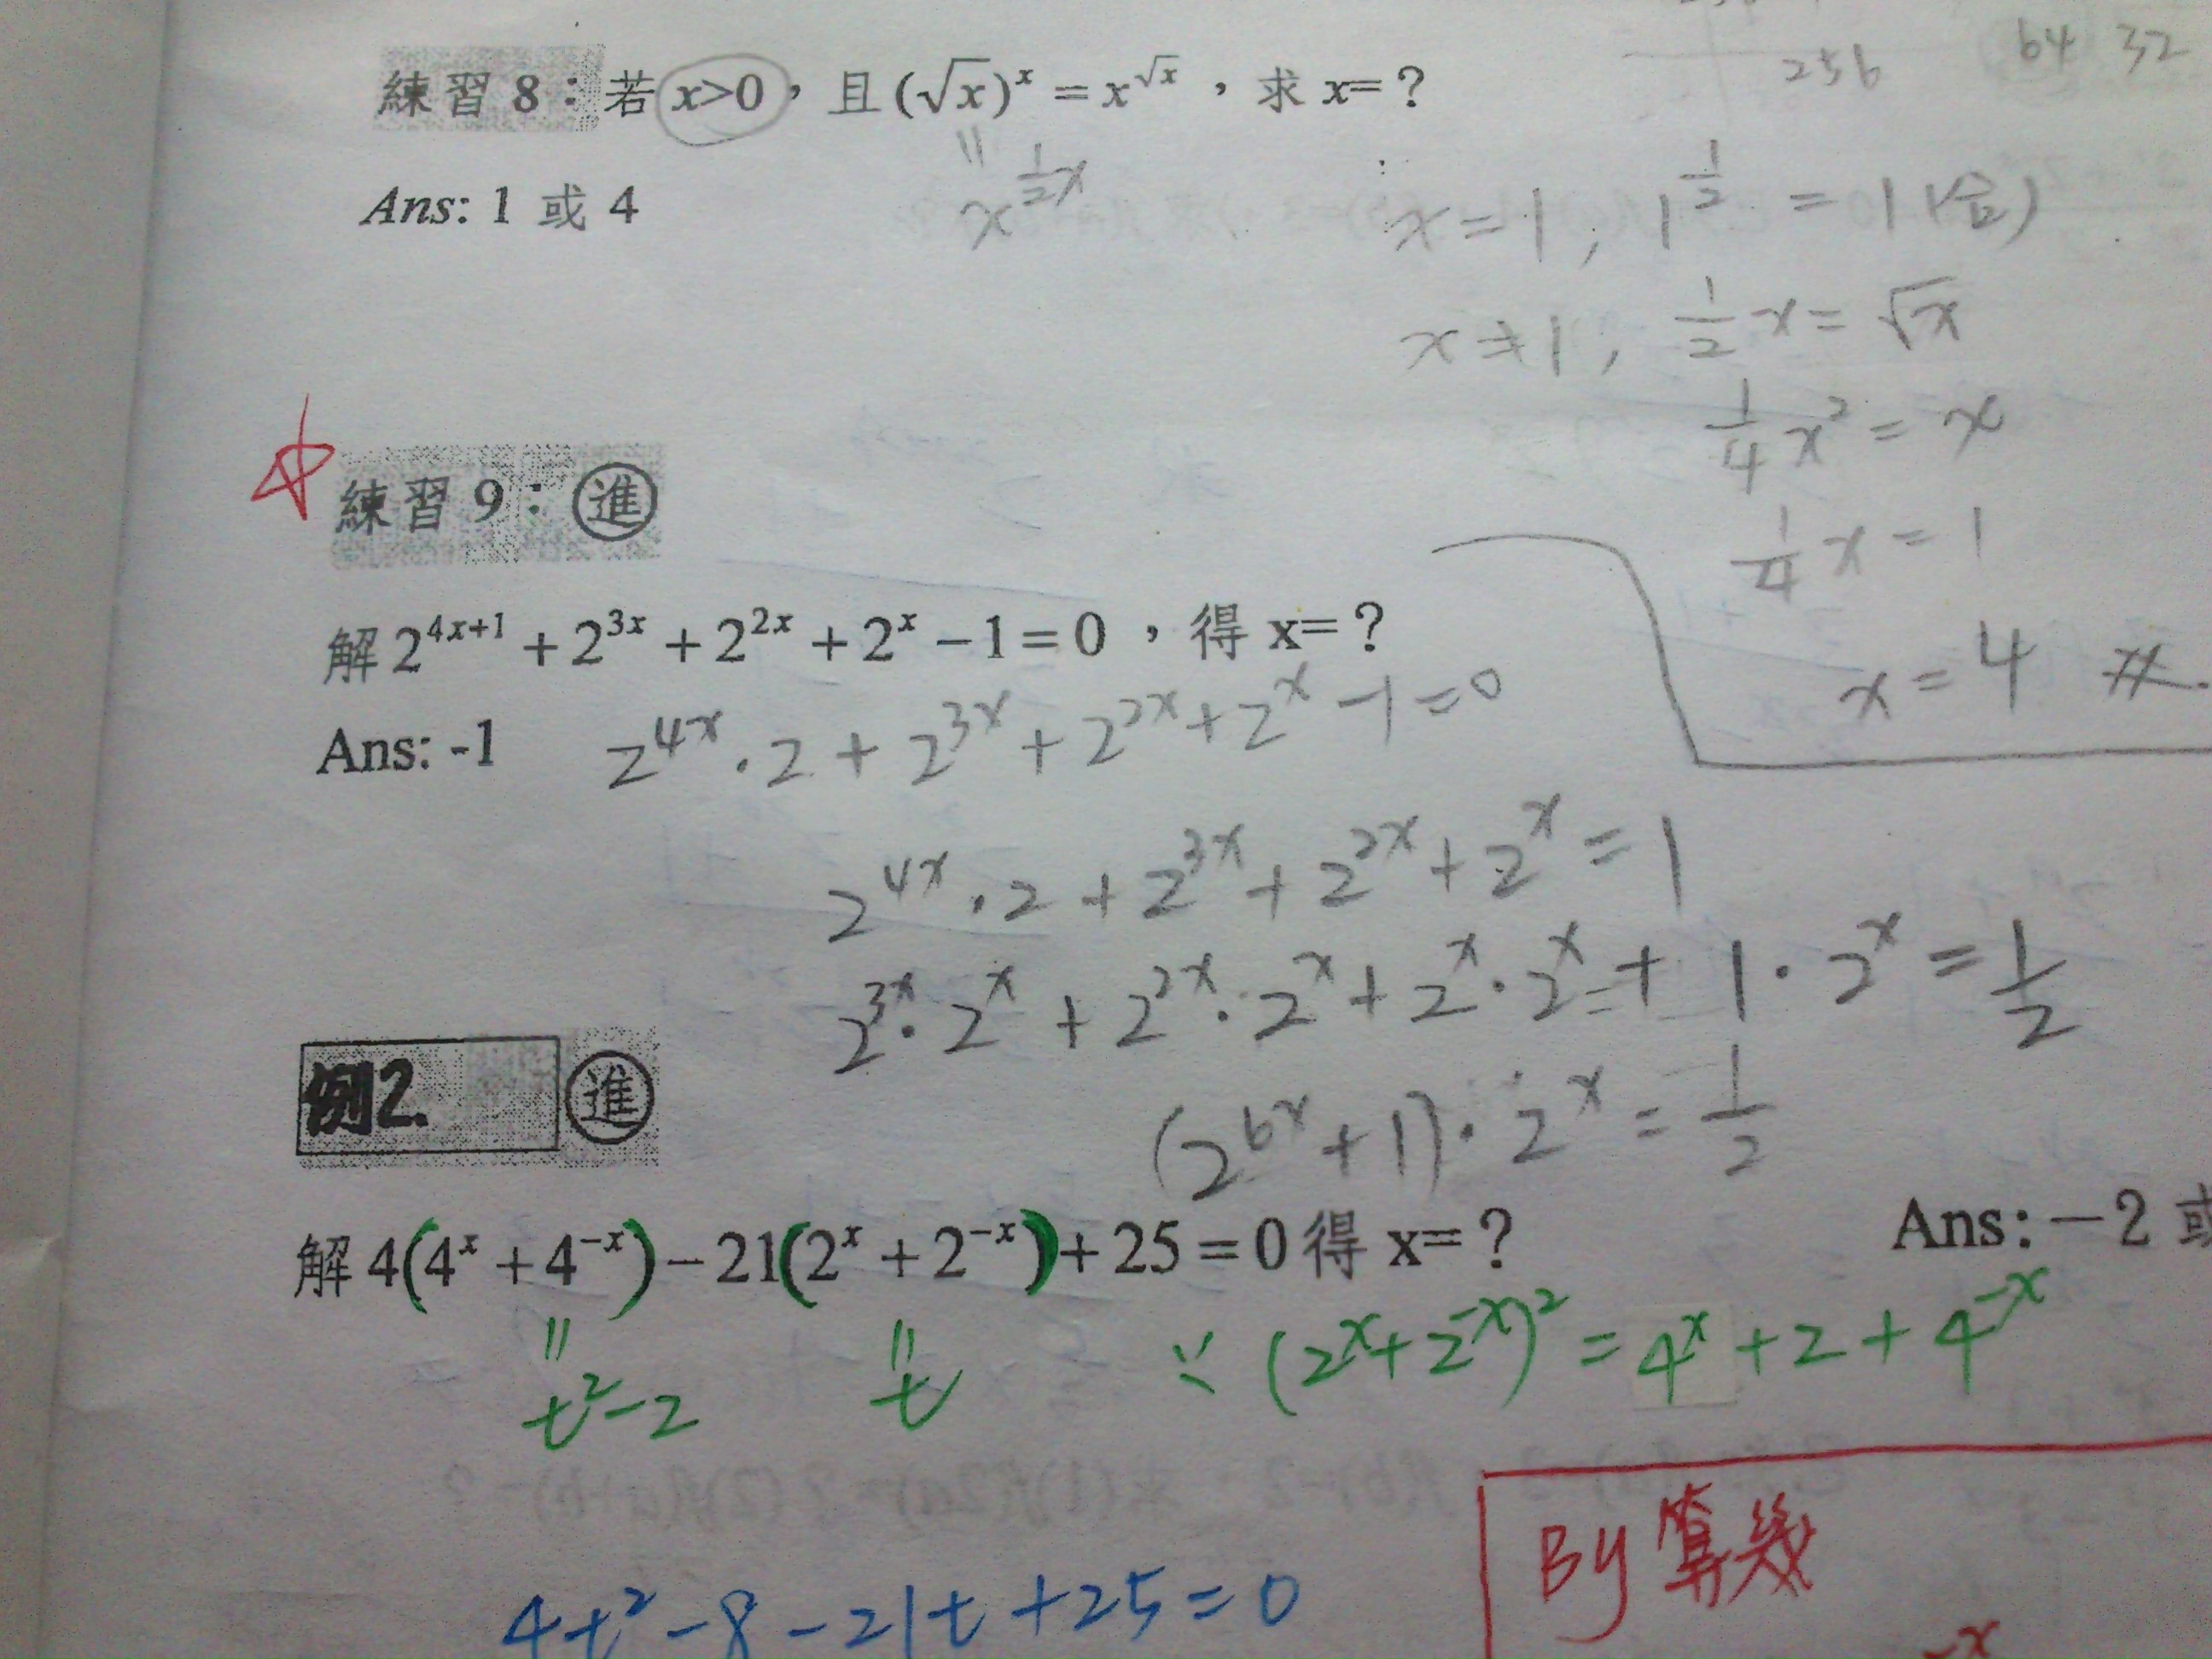 256 64 32
練習 8：若 x>0，且 (√x)^x = x^√x，求 x=？
" x^(1/2 x)
Ans: 1 或 4
x = 1 ; 1^(1/2) = 1 (合)
x ≠ 1 ; 1/2 x = √x
1/4 x² = x
1/4 x = 1
x = 4
練習 9：進
解 2^(4x+1) + 2^(3x) + 2^(2x) + 2^x − 1 = 0，得 x=？
Ans: -1
2^(4x) · 2 + 2^(3x) + 2^(2x) + 2^x − 1 = 0
2^(4x) · 2 + 2^(3x) + 2^(2x) + 2^x = 1
2^(3x) · 2^x + 2^(2x) · 2^x + 2^x · 2^x + 1 · 2^x = 1/2
(2^(6x) + 1) · 2^x = 1/2
例2. 進
解 4(4^x + 4^(−x)) − 21(2^x + 2^(−x)) + 25 = 0 得 x=？
Ans: −2 或
" t² − 2
" t
∵ (2^x + 2^(−x))² = 4^x + 2 + 4^(−x)
4t² − 8 − 21t + 25 = 0
By 算幾
−x